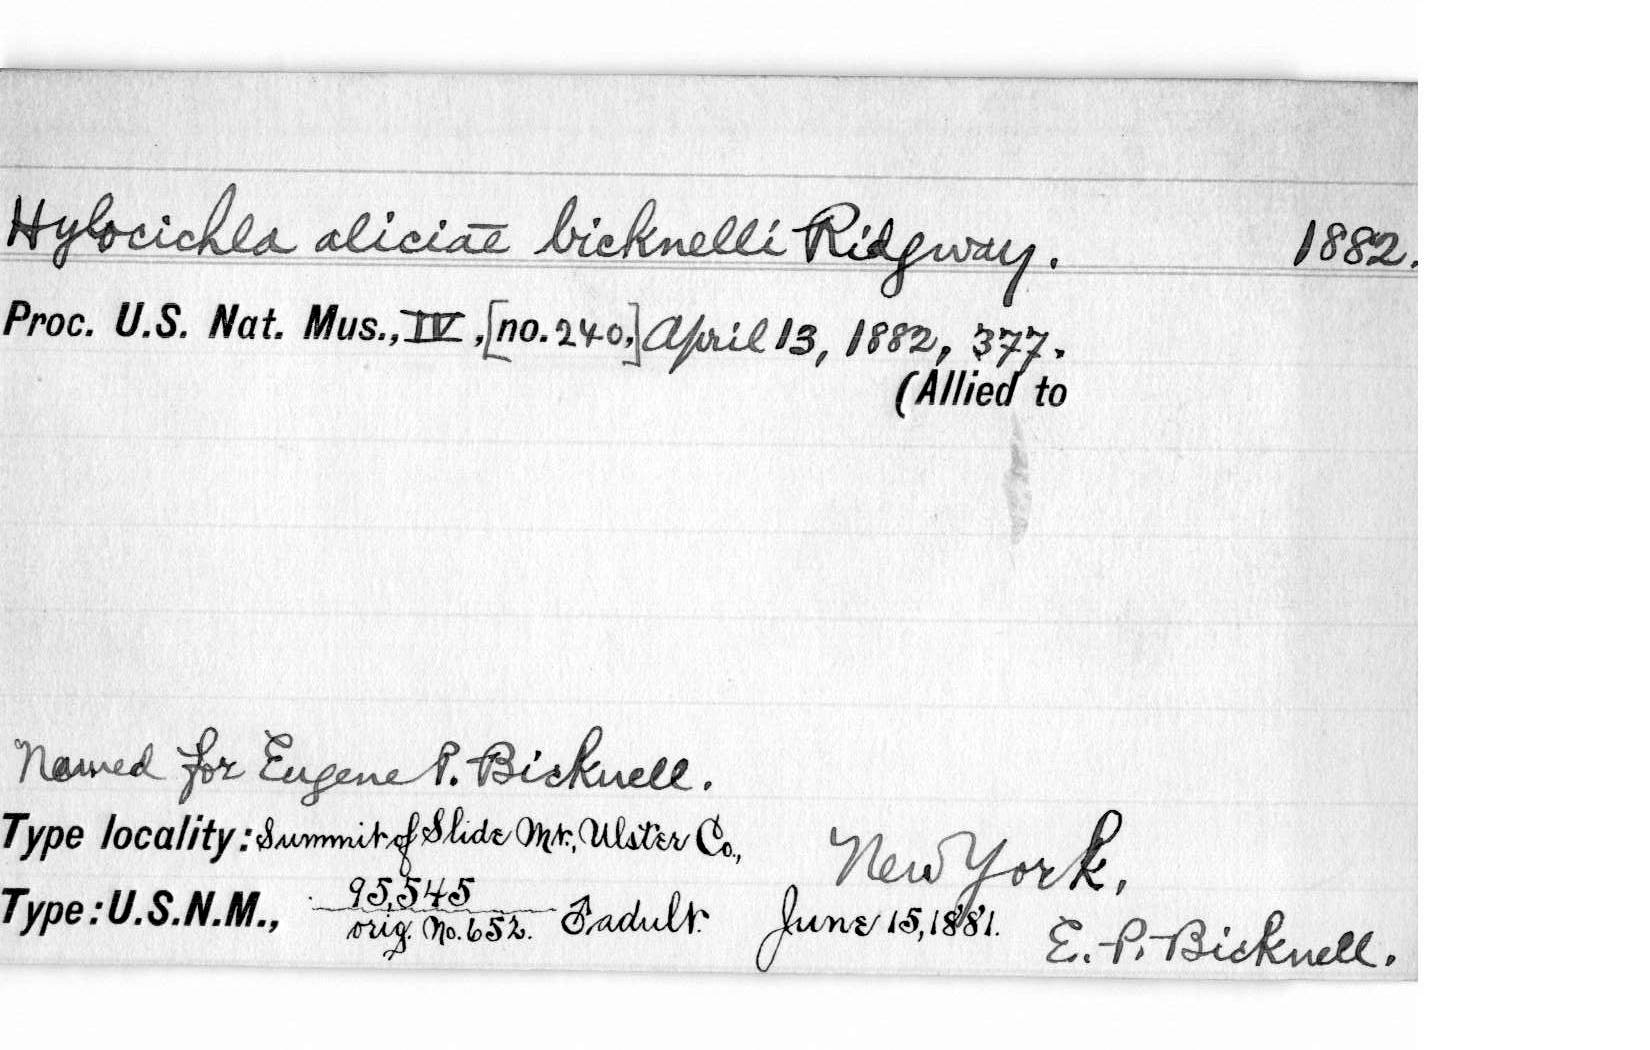 Hylocichla aliciae bicknelli Ridgway. 1882.
Proc. U.S. Nat. Mus., IV, [no. 240,] April 13, 1882, 377.
(Allied to
Named for Eugene P. Bicknell.
Type locality: Summit of Slide Mt., Ulster Co., New York,
Type: U.S.N.M., 95,545 ♂ adult. June 15, 1881. E. P. Bicknell.
orig. No. 652.